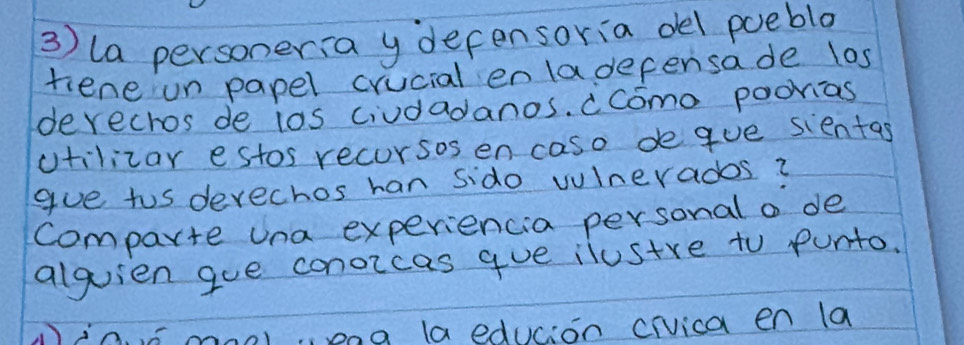 3) la personería y defensoría del pueblo
tiene un papel crucial en la defensa de los
derechos de los ciudadanos. ¿Cómo podrías
utilizar estos recursos en caso de que sientas
que tus derechos han sido vulnerados?
Comparte una experiencia personal o de
alguien que conozcas que ilustre tu punto.
la edución cívica en la